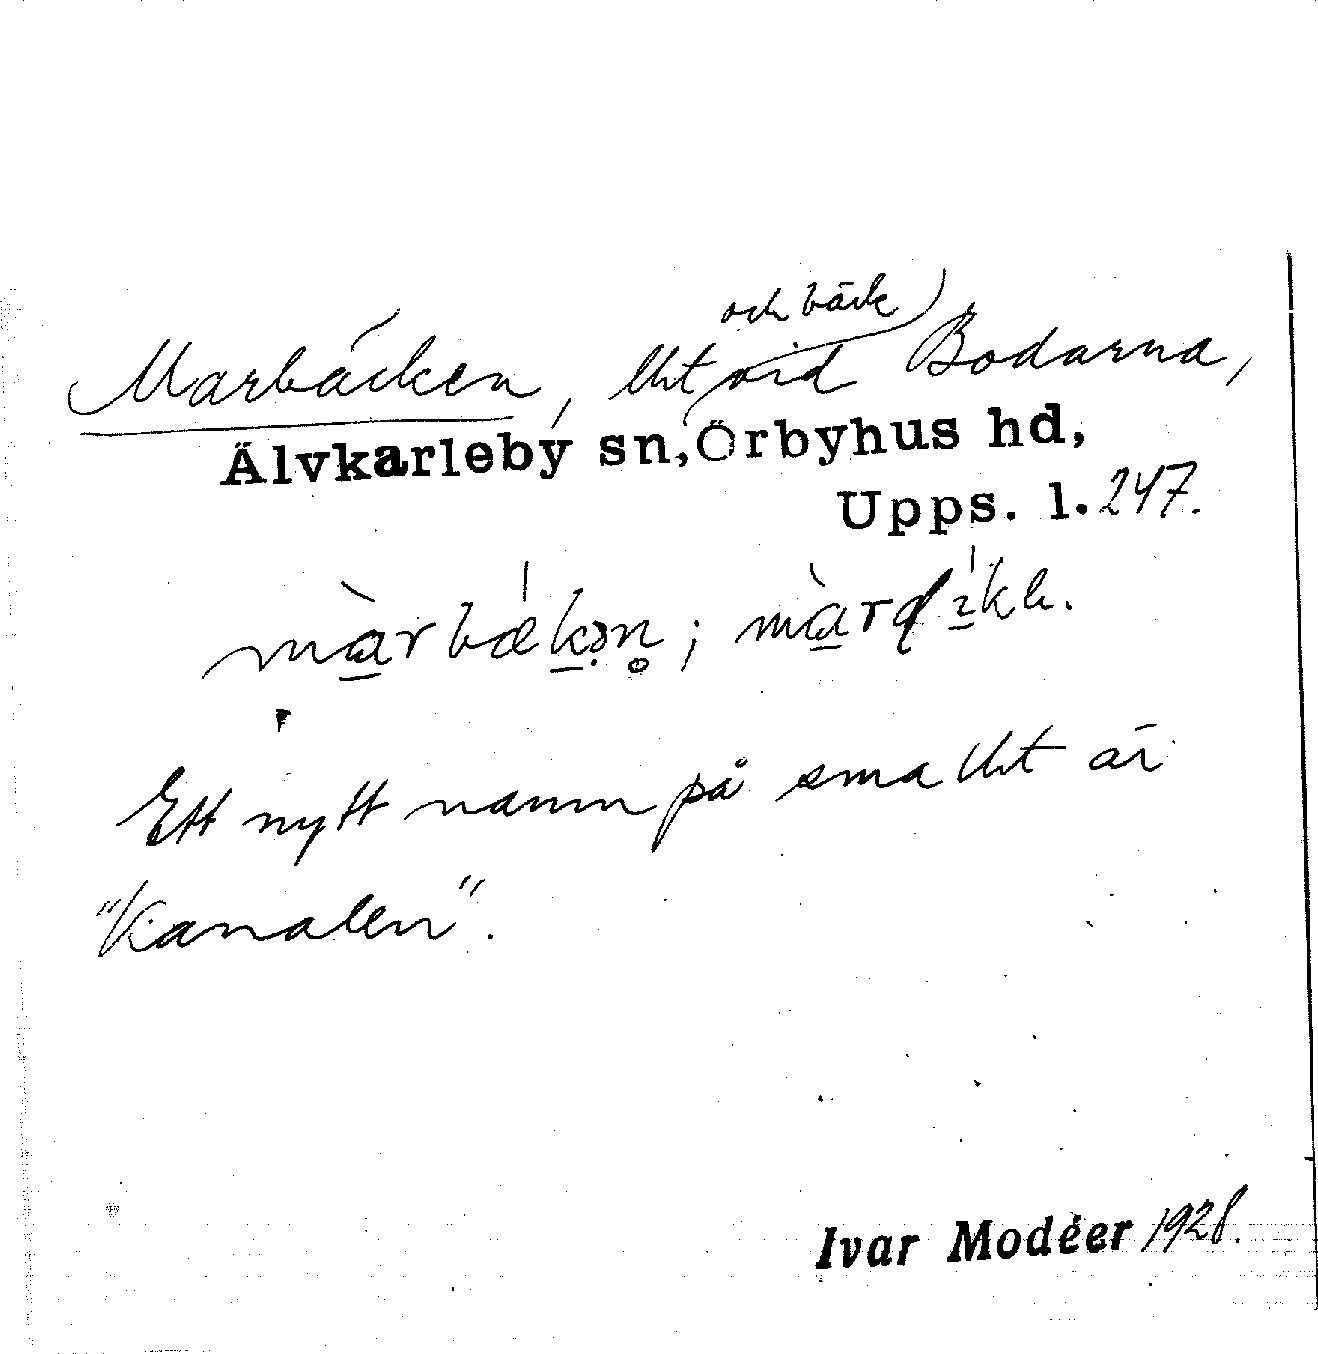 och bäck
Marbäcken, vid Bodarna,
Älvkarleby sn, Örbyhus hd,
Upps. l. 247.
màrbækən̥;
Ett nytt namn på är
"Kanalen".
Ivar Modéer 1928.